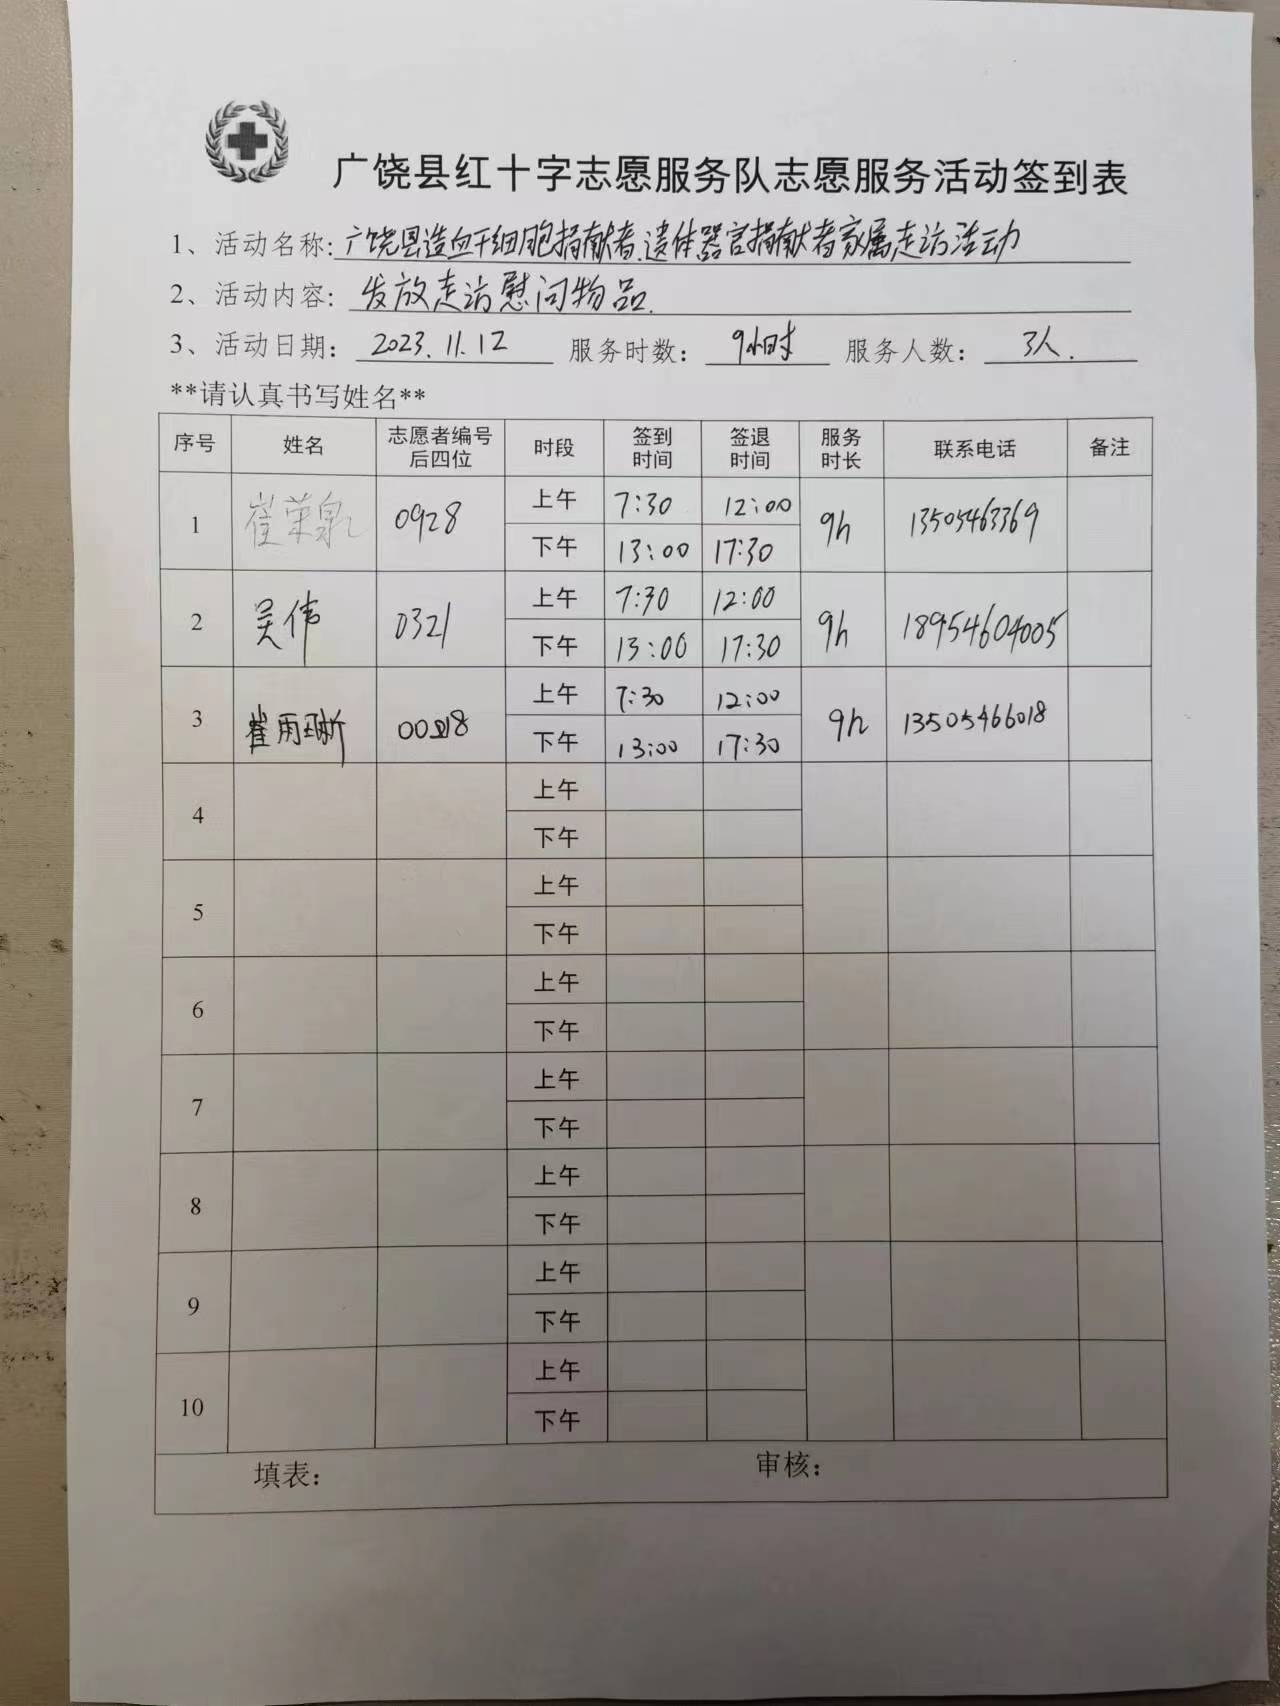 广饶县红十字志愿服务队志愿服务活动签到表
1、活动名称: 广饶县造血干细胞捐献者、遗体器官捐献者家属走访活动
2、活动内容: 发放走访慰问物品.
3、活动日期: 2023.11.12 服务时数: 9小时 服务人数: 3人.
**请认真书写姓名**
序号 姓名 志愿者编号后四位 时段 签到时间 签退时间 服务时长 联系电话 备注
1 崔荣泉 0928 上午 7:30 12:00 9h 13505463369
下午 13:00 17:30
2 吴伟 0321 上午 7:30 12:00 9h 18954604005
下午 13:00 17:30
3 崔雨 上午 7:30 12:00 9h 13505466018
下午 13:00 17:30
4 上午
下午
5 上午
下午
6 上午
下午
7 上午
下午
8 上午
下午
9 上午
下午
10 上午
下午
填表: 审核: